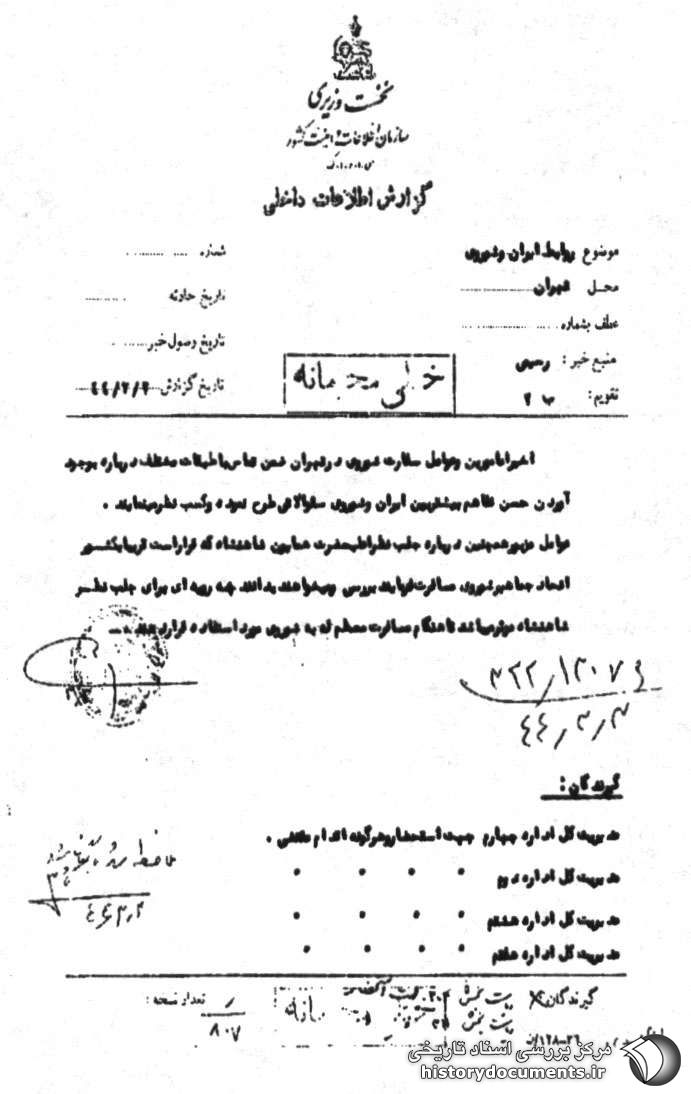 نخست وزیری
سازمان اطلاعات و امنیت کشور
س.ا.و.ا.ک
گزارش اطلاعات داخلی
موضوع روابط ایران و شوروی
محل تهران
عطف بشماره
منبع خبر : رسمی
تقویم : ب ۲
شماره
تاریخ حادثه
تاریخ وصول خبر
تاریخ گزارش ۴۴/۳/۲
خیلی محرمانه
اخیرا مامورین و عوامل سفارت شوروی در تهران ضمن تماس با طبقات مختلف درباره بوجود
آوردن حسن تفاهم بیشتر بین ایران و شوروی سئوالاتی طرح نموده و کسب نظر مینمایند .
عوامل مزبور همچنین درباره جلب نظر اعلیحضرت همایون شاهنشاه که قرار است قریبا بکشور
اتحاد جماهیر شوروی مسافرت فرمایند بررسی و میخواهند بدانند چه رویه ای برای جلب نظر
شاهنشاه موثر میباشد تا هنگام مسافرت معظم له به شوروی مورد استفاده قرار دهند .
۳۲۲/۱۳۰۷۶
۴۴/۳/۳
گیرندگان :
مدیریت کل اداره چهارم جهت استحضار و هرگونه اقدام مقتضی .
مدیریت کل اداره دوم " " " "
مدیریت کل اداره هشتم " " " "
مدیریت کل اداره هفتم " " " "
گیرندگان :
تعداد نسخه :
۸۰۷
مرکز بررسی اسناد تاریخی
historydocuments.ir